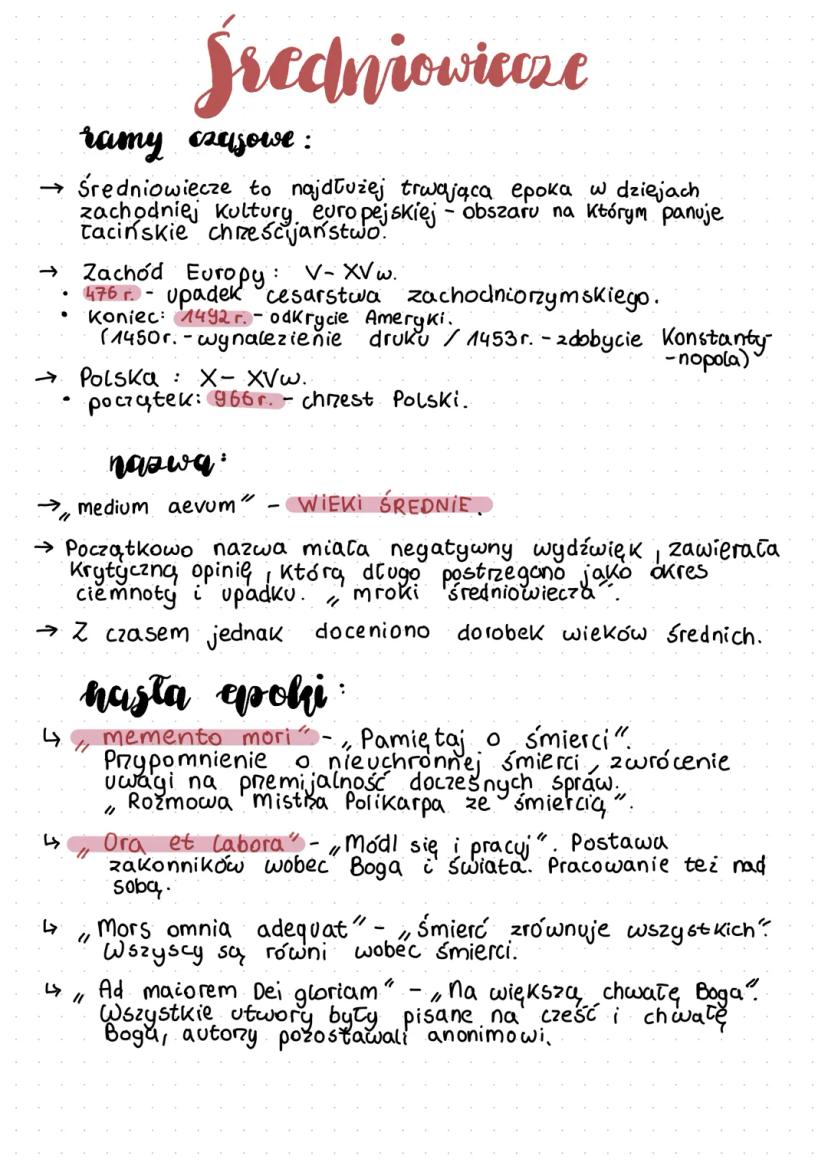 Średniowiecze
ramy czasowe:
→ Średniowiecze to najdłużej trwająca epoka w dziejach
zachodniej kultury europejskiej - obszaru na którym panuje
łacińskie chrześcijaństwo.
→ Zachód Europy: V- XVw.
• 476 r. - upadek cesarstwa zachodniorzymskiego.
• Koniec: 1492 r. - odkrycie Ameryki.
(1450r. - wynalezienie druku / 1453r. - zdobycie Konstanty-
-nopola)
→ Polska : X- XVw.
• początek: 966 r. - chrzest Polski.
nazwa:
→ „medium aevum" - WIEKI ŚREDNIE.
→ Początkowo nazwa miała negatywny wydźwięk, zawierała
krytyczną opinię, którą długo postrzegano jako okres
ciemnoty i upadku. „mroki średniowiecza".
→ Z czasem jednak doceniono dorobek wieków średnich.
hasła epoki:
↳ „memento mori" - „Pamiętaj o śmierci".
Przypomnienie o nieuchronnej śmierci, zwrócenie
uwagi na przemijalność doczesnych spraw.
„Rozmowa Mistrza Polikarpa ze śmiercią".
↳ „Ora et labora" - „Módl się i pracuj". Postawa
zakonników wobec Boga i świata. Pracowanie też nad
sobą.
↳ „Mors omnia adequat" - „śmierć zrównuje wszystkich".
Wszyscy są równi wobec śmierci.
↳ „Ad maiorem Dei gloriam" - „Na większą chwałę Boga".
Wszystkie utwory były pisane na cześć i chwałę
Boga, autorzy pozostawali anonimowi.